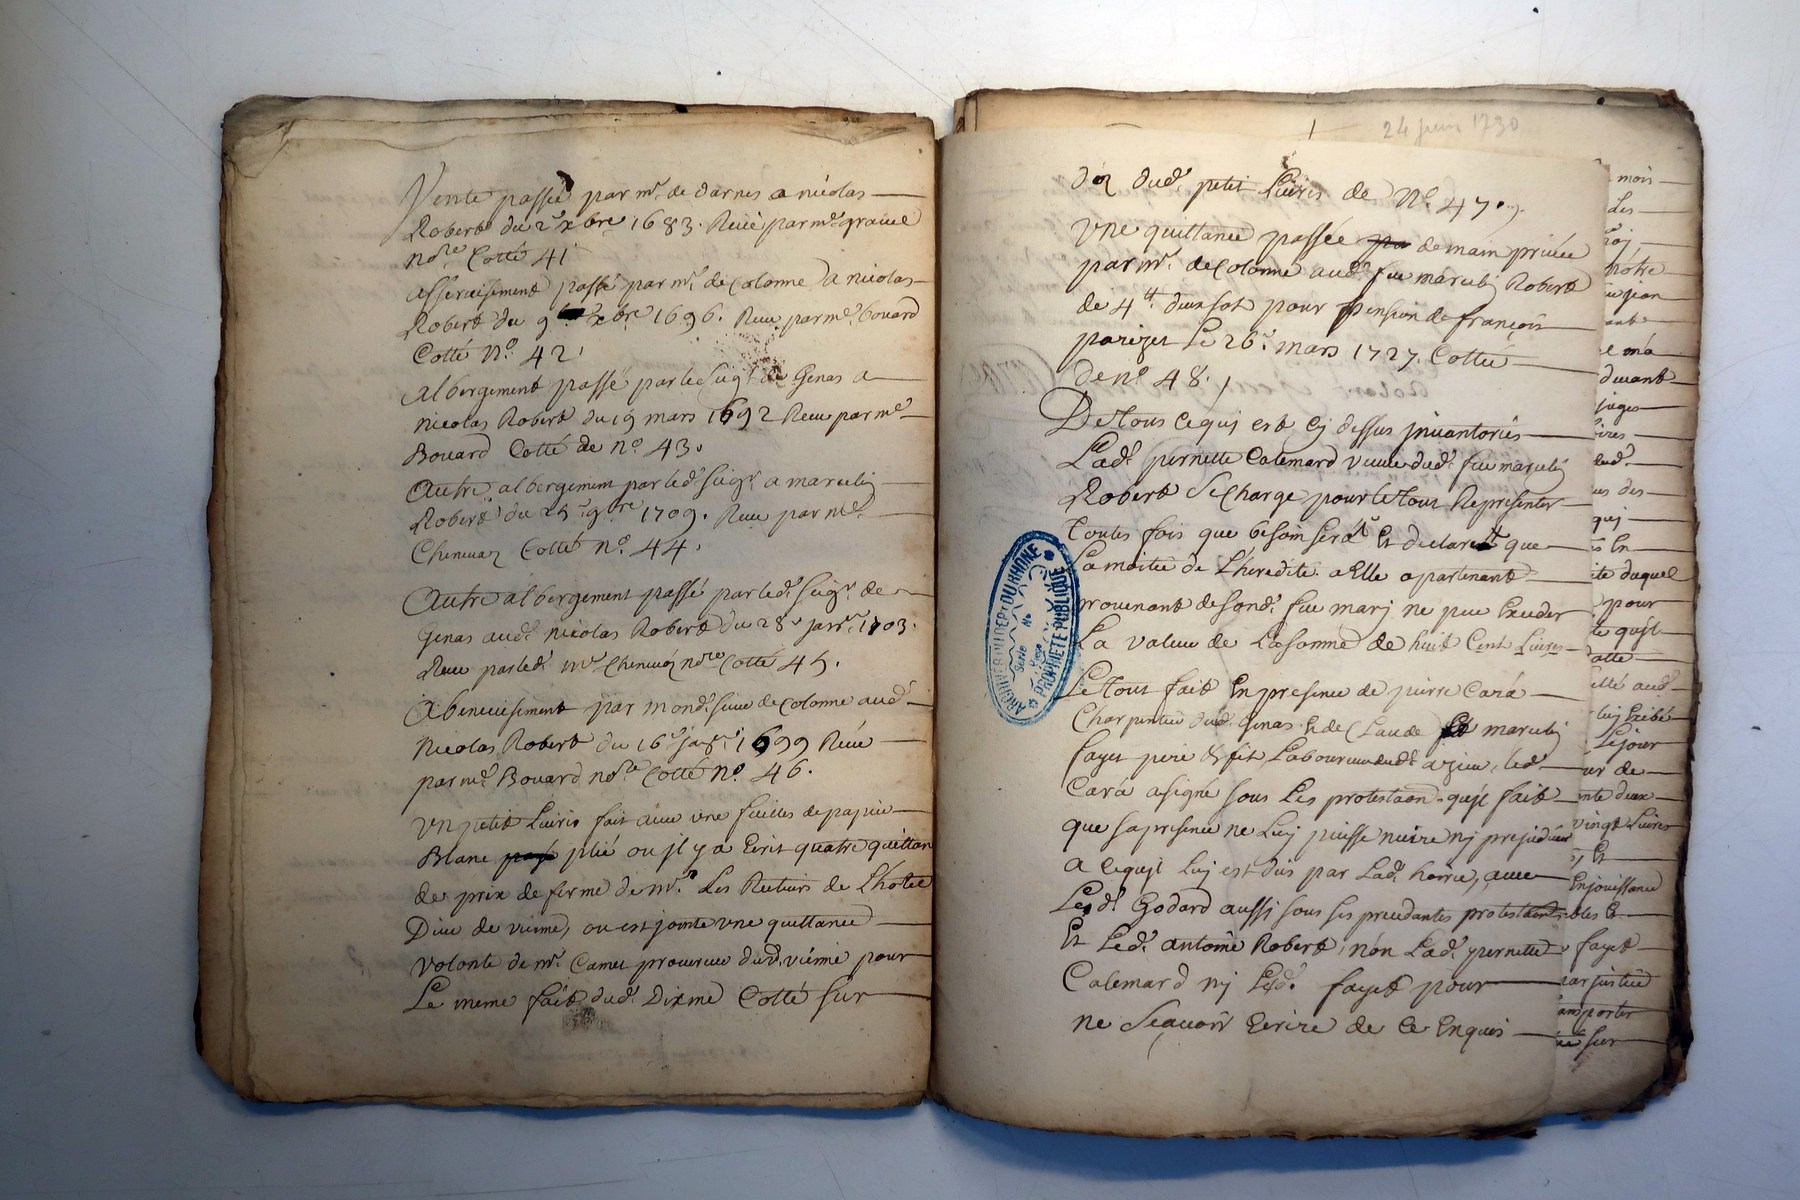 Vente passée par mr. de darnes a nicolas
Robert du 2e xbre 1683. Reçue par me. grauel
nore Cotté 41
asseruisement passé par mr. de Colonne a nicolas
Robert du 9e xbre 1696. Reçu par me. bouard
Cotté No. 42
albergement passé par le Seigr. de Genas a
nicolas Robert du 19 mars 1692 Reçu par me
Bouard Cotté de no. 43.
Autre albergement par led. Seigr. a marcelin
Robert du 25e 9bre 1709. Reçu par me.
Cheneuaz Cotté no. 44.
Autre albergement passé par led. Seigr. de
Genas aud. nicolas Robert du 28e janr. 1703.
Reçu par led. me. Cheneuaz nore Cotté 45.
Abeneuisement par mond. sieur de Colonne aud.
Nicolas Robert du 16e janr. 1699 Reçu
par me. Bouard nore Cotté no. 46.
Un petit Liuris fait auec une fuilles de papier
Blanc plié ou jl y a Ecrit quatre quittan
de prix de ferme de mrs. Les Recteurs de L'hotel
Dieu de vienne, ou est jointe une quittance
volonte de mr. Camet procureur dud. vienne pour
Le meme fait dud. Dixme Cotté sur
24 juin 1730
dos dud. petit Liuris de No. 47.
Une quittance passée de main priuée
par mr. de Colonne aud. feu marcelin Robert
de 4 tt d'un sol pour pension de françois
parizet Le 26e. mars 1727. Cottée
de no. 48.
De tous ce quj est Cj dessus jnuantoriés
Lad. pernette Calemard veuue dud. feu marcelin
Robert se Charge pour le tout Representer
toutes fois que besoin serat Et declare que
La moitié de L'heredité a Elle apartenant
prouenant de sond. feu marj ne peu Exceder
La valeur de La somme de huit Cent Liures
Le tout fait En presence de pierre Cara
Charpentier dud. Genas & de Claude Et marcelin
fayet pere & fils Laboureur dud. azieu, led.
Cara a signé sous Les protestaon. qu'jl fait
que sa presence ne Luj puisse nuire nj prejudicier
a ce qujl Luj est dus par Lad. hoirie, auec
Led. Godard aussi sous ses precedantes protestaons
Et Led. antoine Robert, non Lad. pernette
Calemard nj Led. fayet pour
ne Scauoir Ecrire de Ce Enquis
ARCHIVES DU DEPt DU RHONE
Serie No
PROPRIETE PUBLIQUE
mois
Les
notre
jean
durant
juges
des
quj
En
duquel
pour
qujl
aud.
Le jour
de
deux
vingt Liures
Et
Enjouissance
fayet
par justice
transporter
sur